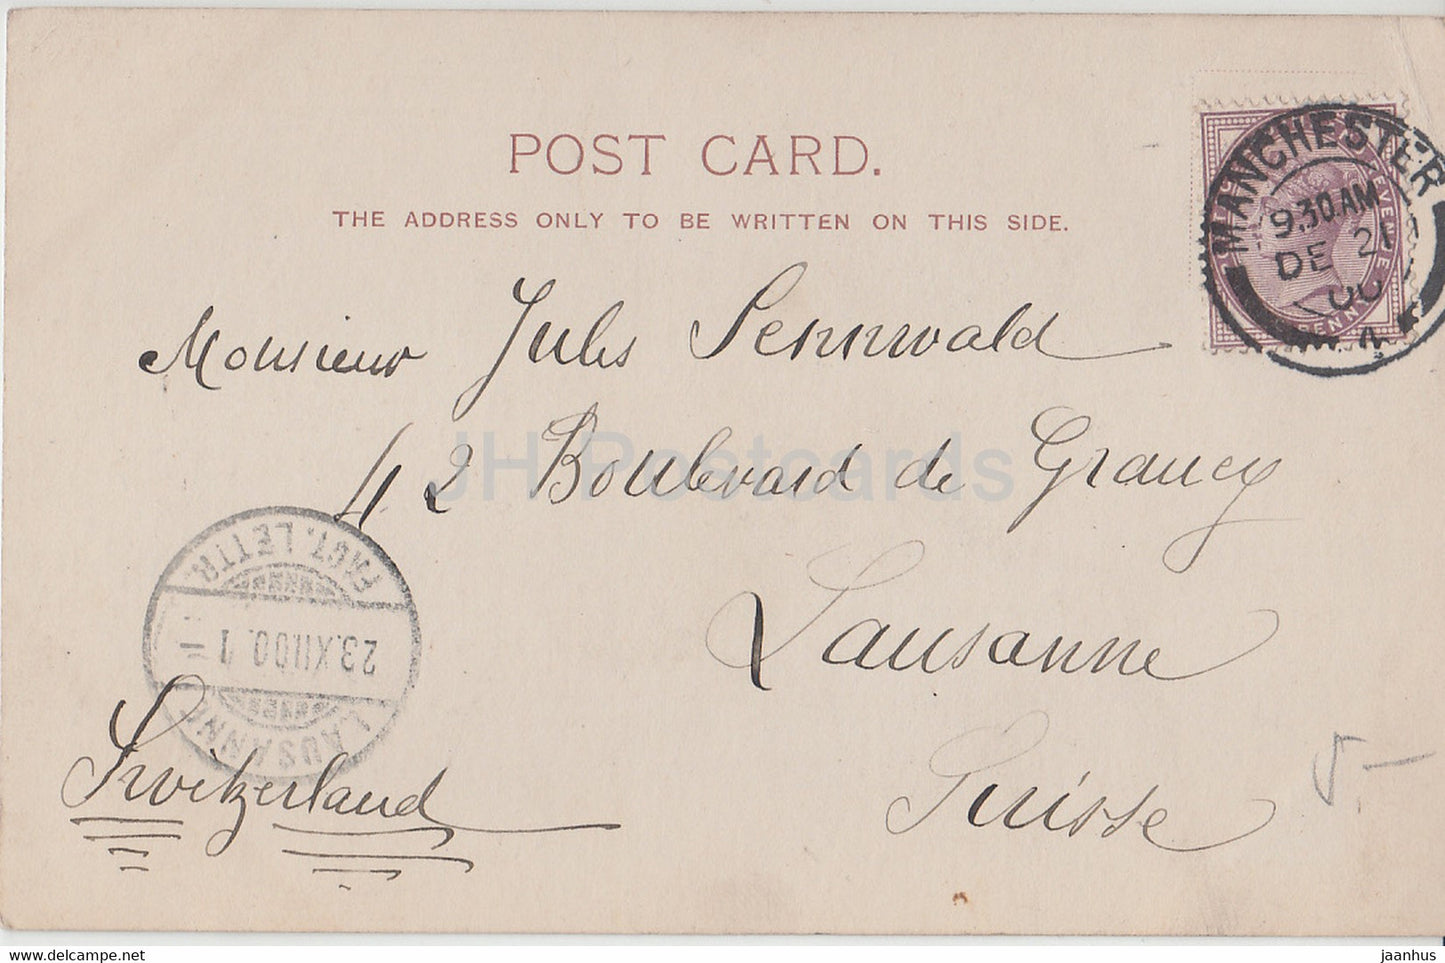 POST CARD.
THE ADDRESS ONLY TO BE WRITTEN ON THIS SIDE.
MANCHESTER
9.30.AM
DE 21
00
Monsieur Jules Sennwald
42 Boulevard de Grancy
Lausanne
Suisse
Switzerland
FACT. LETTR.
23.XII.00.
LAUSANNE
JH Postcards
https://www.delcampe.net
jaanhus